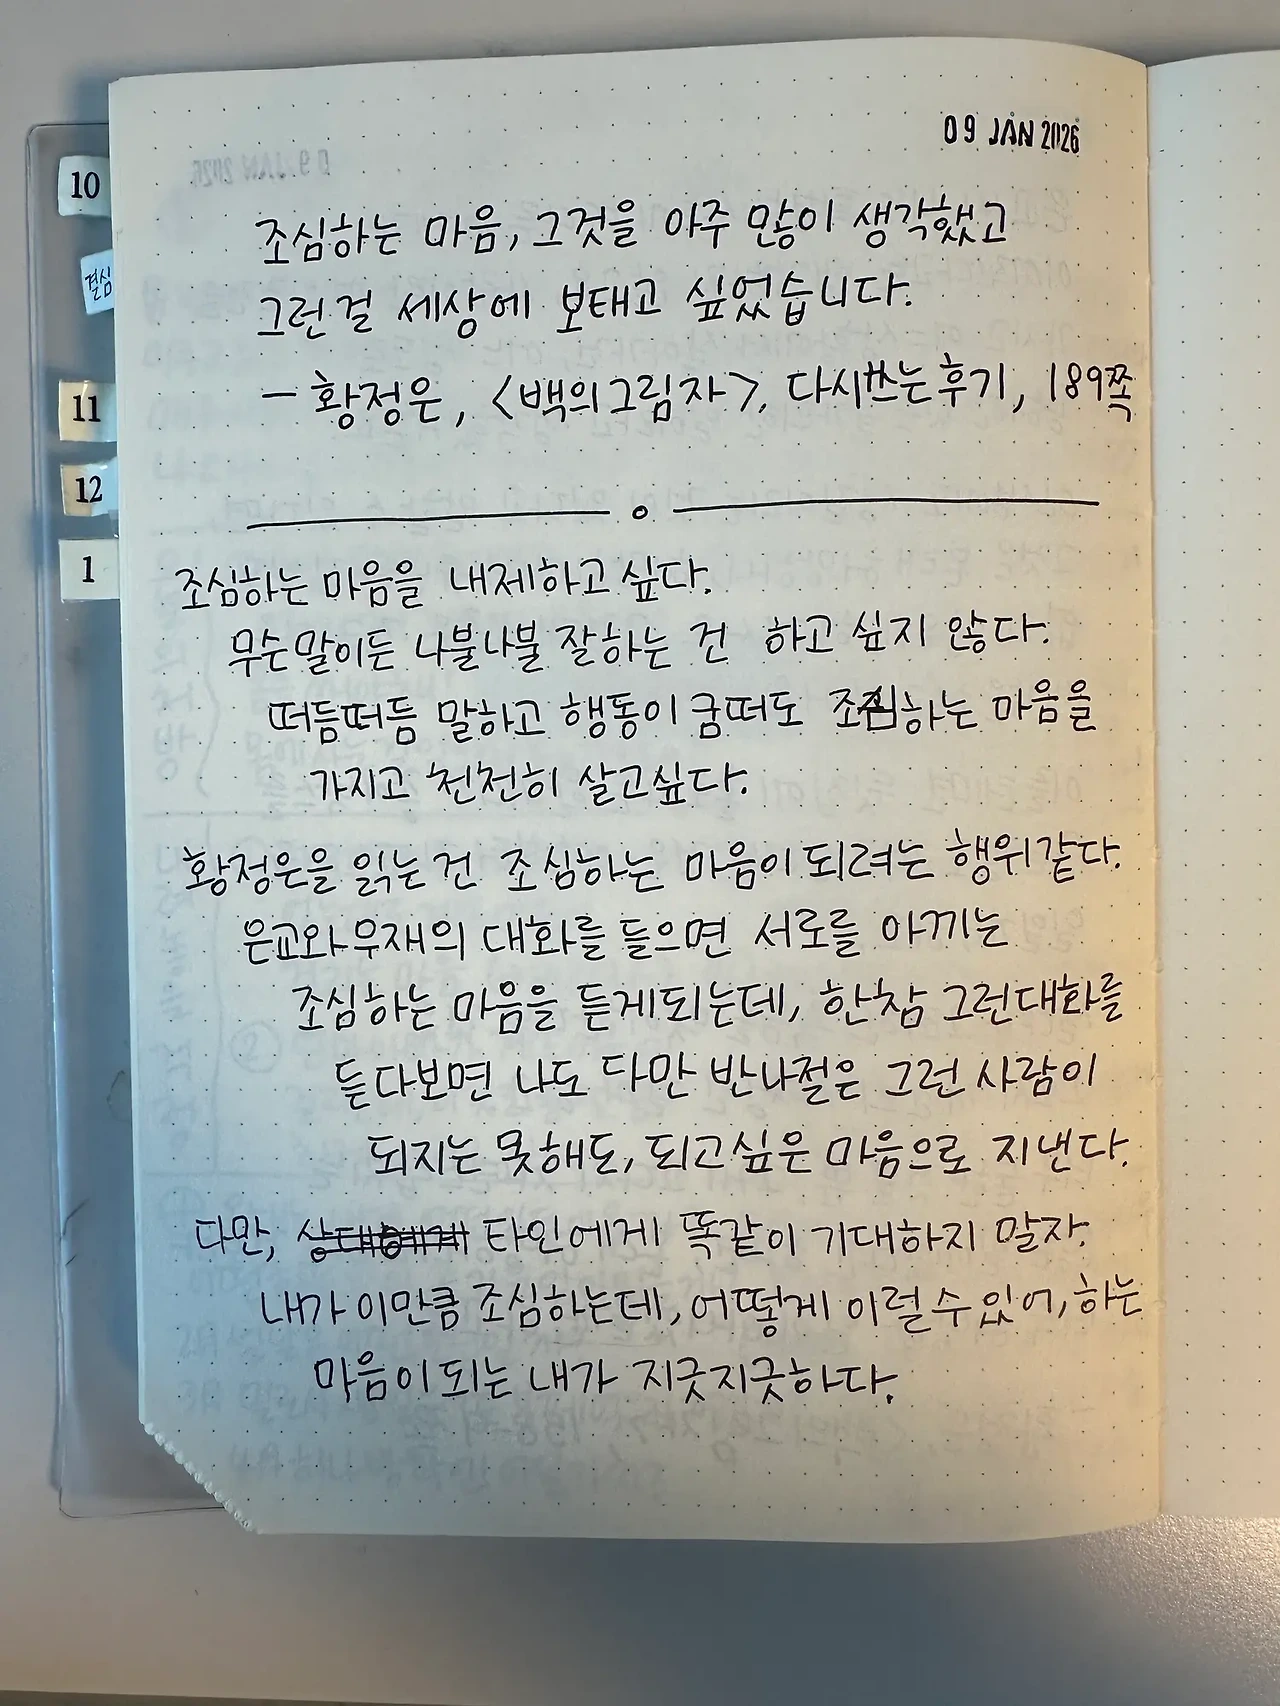 09 JAN 2026
10
결심
11
12
1
조심하는 마음, 그것을 아주 많이 생각했고
그런걸 세상에 보태고 싶었습니다.
- 황정은, <백의그림자>, 다시쓰는후기, 189쪽
조심하는 마음을 내제하고 싶다.
무슨 말이든 나불나불 잘하는 건 하고 싶지 않다.
떠듬떠듬 말하고 행동이 굼떠도 조심하는 마음을
가지고 천천히 살고싶다.
황정은을 읽는 건 조심하는 마음이 되려는 행위같다.
은교와 우재의 대화를 들으면 서로를 아끼는
조심하는 마음을 듣게되는데, 한참 그런대화를
듣다보면 나도 다만 반나절은 그런 사람이
되지는 못해도, 되고싶은 마음으로 지낸다.
다만, 상대에게 타인에게 똑같이 기대하지 말자.
내가 이만큼 조심하는데, 어떻게 이럴 수 있어, 하는
마음이 되는 내가 지긋지긋하다.